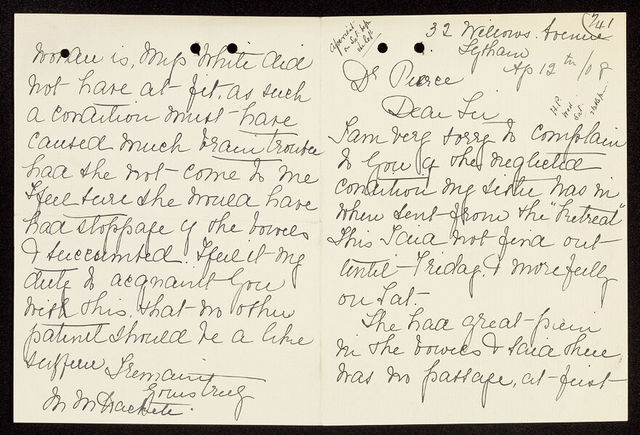 741
32 Willows Avenue
Lytham
Ap 12th/08
Dr Pierce
Dear Sir
I am very sorry to complain
to you of the neglected
condition my sister was in
when sent from the "Retreat"
This I did not find out
until Friday & more fully
on Sat-
She had great pain
in the bowels & said there
was no passage, at first
woman is, Miss White did
not have at fit, as such
a condition must have
caused much brain trouble
had she not come to me
I feel sure she would have
had stoppage of the bowels
& succumbed. I feel it my
duty to acquaint you
with this, that no other
patient should be a like
sufferer I remain
Yours truly
M M